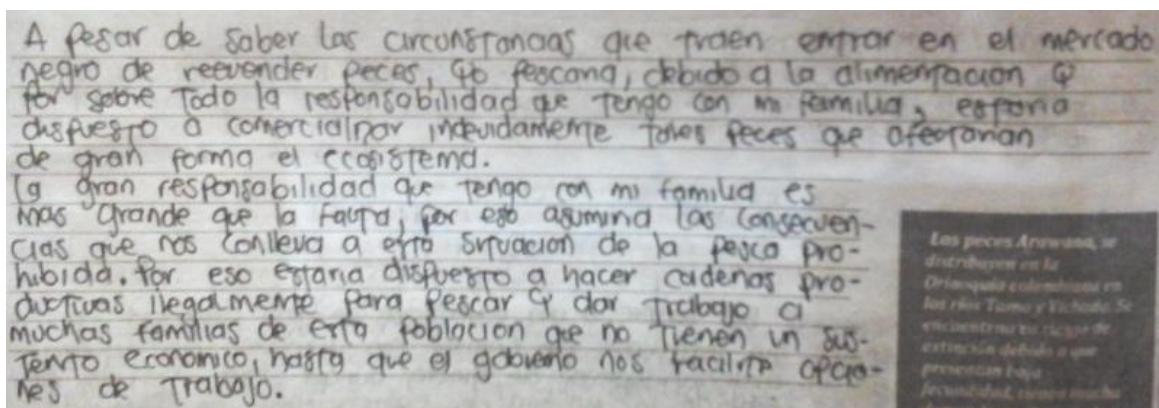 A pesar de saber las circunstancias que traen entrar en el mercado
negro de reevender peces, yo pescaria, debido a la alimentacion y
por sobre todo la responsabilidad que tengo con mi familia, estaria
dispuesto a comercialpar indevidamente tales peces que afectarian
de gran forma el ecosistema.
la gran responsabilidad que tengo con mi familia es
mas grande que la fauna, por eso asumiria las consecuen-
cias que nos conlleva a esta situacion de la pesca pro-
hibida. Por eso estaria dispuesto a hacer cadenas pro-
ductivas ilegalmente para pescar y dar trabajo a
muchas familias de esta poblacion que no tienen un sus-
tento economico, hasta que el gobierno nos facilite opcio-
nes de trabajo.
Los peces Arawana, se
distribuyen en la
Orinoquia colombiana en
los ríos Tomo y Vichada. Se
encuentra en riesgo de
extinción debido a que
presentan baja
fecundidad, tienen mucha